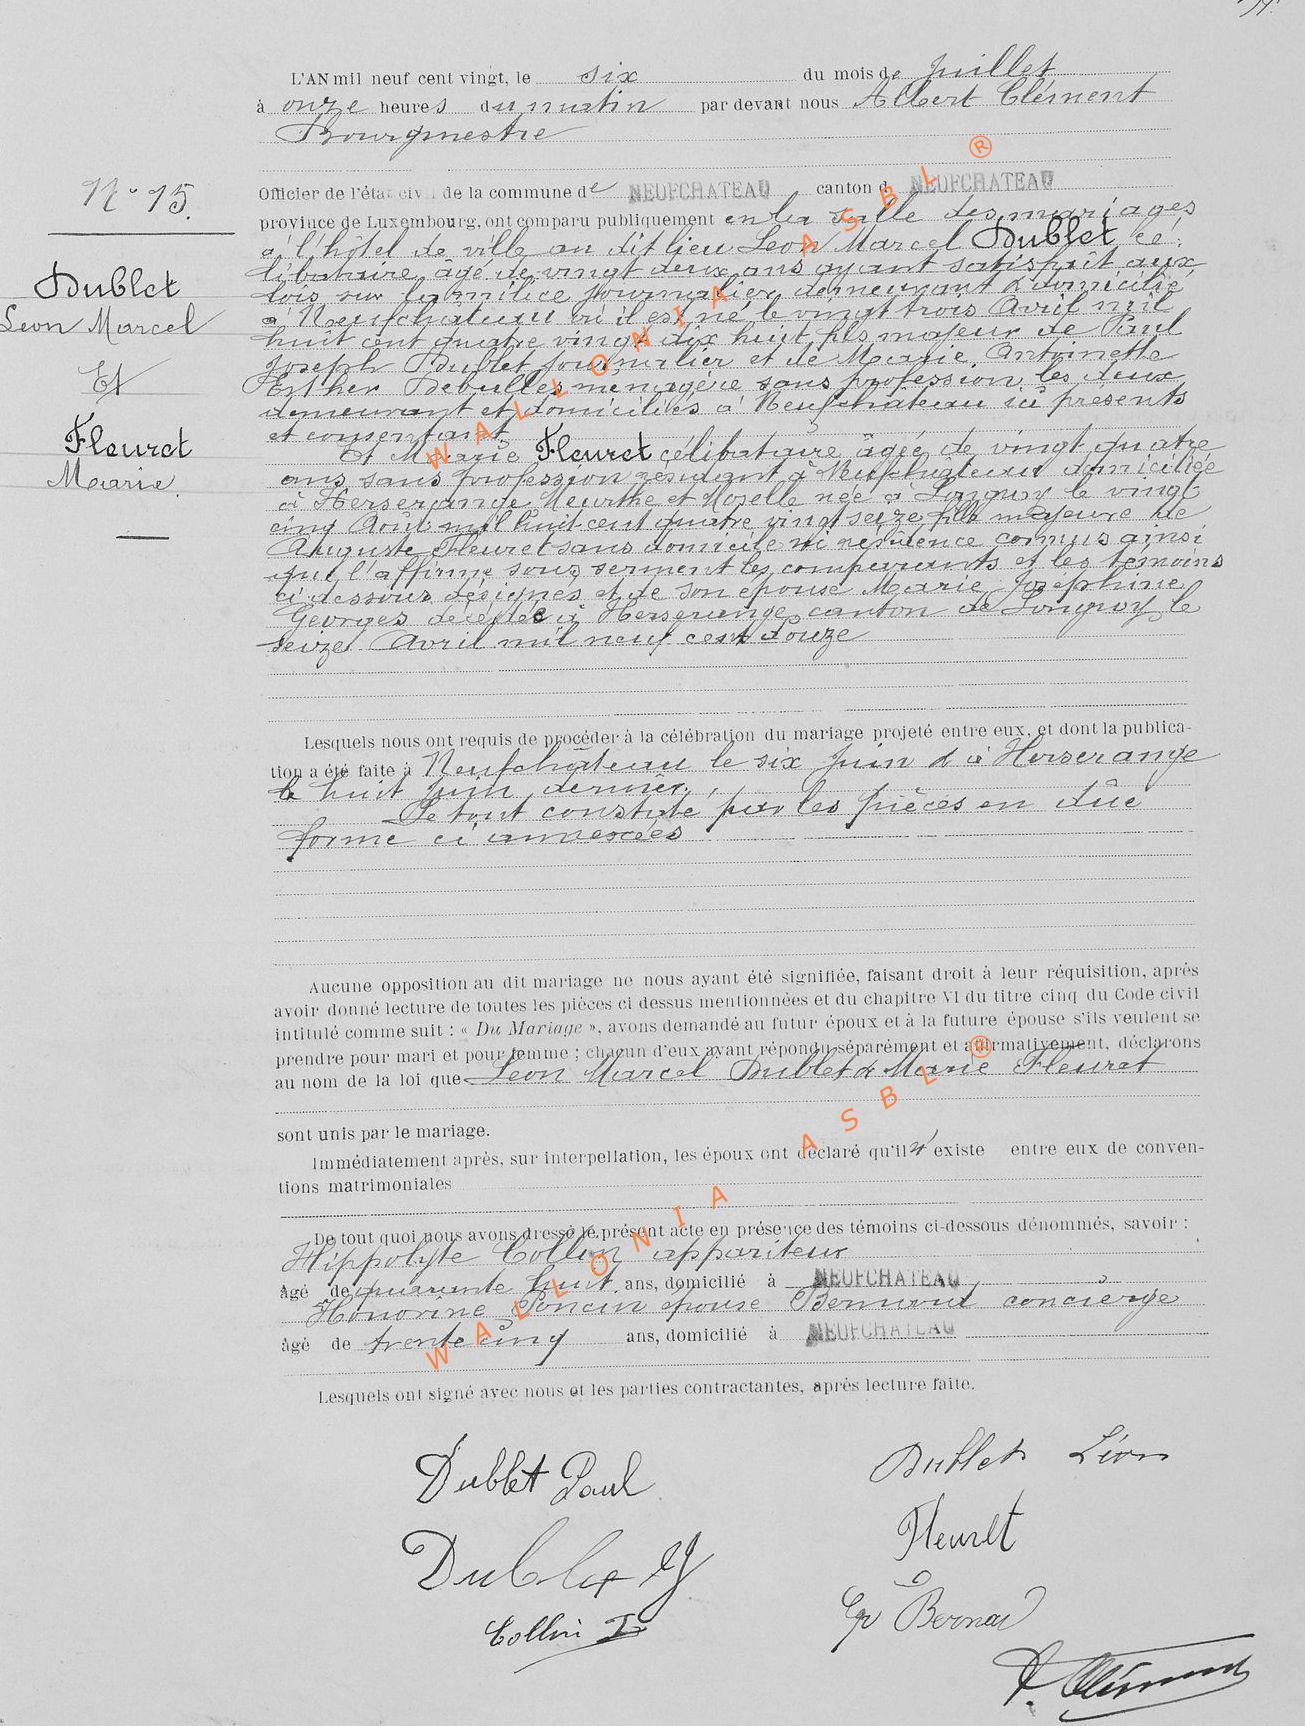 L'AN mil neuf cent vingt, le six du mois de Juillet
à onze heures du matin par devant nous Albert Clément
Bourgmestre
Officier de l'état civil de la commune de NEUFCHATEAU canton d NEUFCHATEAU
province de Luxembourg, ont comparu publiquement en la salle des mariages
à l'hôtel de ville au dit lieu Leon Marcel Dublet, cé-
libataire, âgé de vingt deux ans ayant satisfait aux
lois sur la milice journalier demeurant & domicilié
à Neufchateau où il est né le vingt trois Avril mil
huit cent quatre vingt dix huit fils majeur de Paul
Joseph Dublet journalier et de Marie Antoinette
Esther menagère sans profession les deux
demeurant et domiciliés à Neufchâteau ici présents
et consentant
Et Marie Fleuret célibataire âgée de vingt quatre
ans sans profession résidant à Neufchateau domiciliée
à Herserange Meurthe et Moselle née à Longwy le vingt
cinq Août mil huit cent quatre vingt seize fille majeure de
Auguste Fleuret sans domicile ni résidence connus ainsi
que l'affirme sous serment les comparants et les témoins
ci dessous désignés et de son épouse Marie Josephine
Georges décédée à Herserange canton de Longwy le
seize Avril mil neuf cent douze
N° 15.
Dublet
Leon Marcel
Et
Fleuret
Marie
Lesquels nous ont requis de procéder à la célébration du mariage projeté entre eux, et dont la publica-
tion a été faite à Neufchâteau le six Juin & à Herserange
le huit Juin dernier.
Le tout constaté par les pièces en dûe
forme ci annexées
Aucune opposition au dit mariage ne nous ayant été signifiée, faisant droit à leur réquisition, après
avoir donné lecture de toutes les pièces ci dessus mentionnées et du chapitre VI du titre cinq du Code civil
intitulé comme suit : « Du Mariage », avons demandé au futur époux et à la future épouse s'ils veulent se
prendre pour mari et pour femme ; chacun d'eux ayant répondu séparément et affirmativement, déclarons
au nom de la loi que Leon Marcel Dublet & Marie Fleuret
sont unis par le mariage.
Immédiatement après, sur interpellation, les époux ont déclaré qu'il n'existe entre eux de conven-
tions matrimoniales
De tout quoi nous avons dressé le présent acte en présence des témoins ci-dessous dénommés, savoir :
Hippolyte Collin appariteur
âgé de quarante huit ans, domicilié à NEUFCHATEAU
Honorine Poncin épouse Bernard concierge
âgé de trente cinq ans, domicilié à NEUFCHATEAU
Lesquels ont signé avec nous et les parties contractantes, après lecture faite.
Dublet Paul
Dublet Léon
Fleuret
Collin
Bernard
A. Clément
WALLONIA ASBL ®
WALLONIA ASBL ®